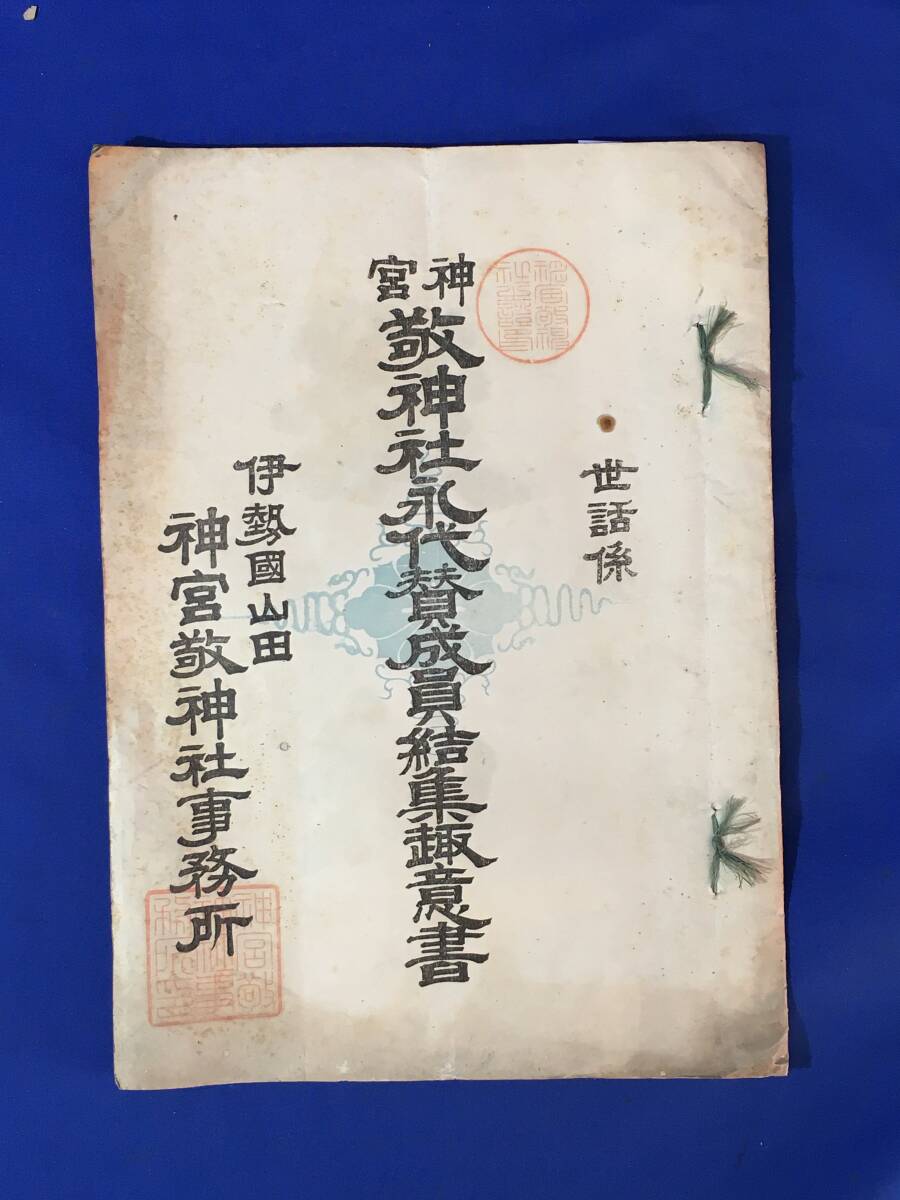 世話係
神宮
敬神社永代賛成員結集趣意書
伊勢國山田
神宮敬神社事務所